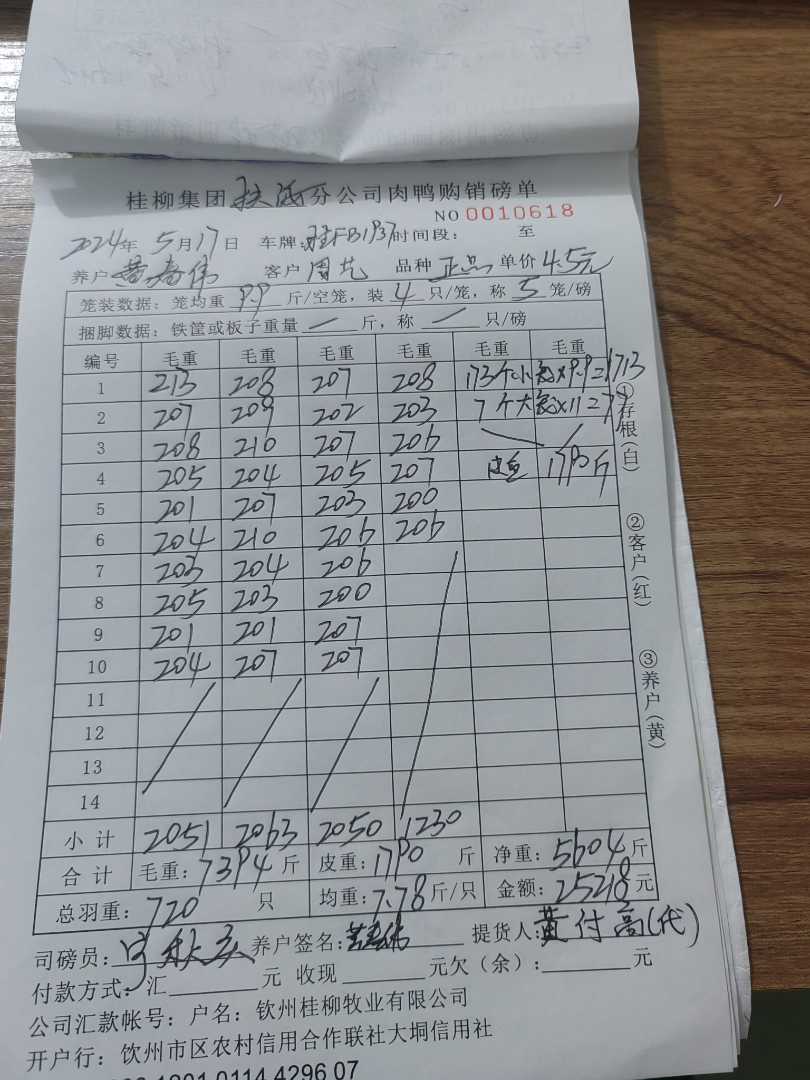 桂柳集团 分公司肉鸭购销磅单
NO 0010618
2024年 5月17日 车牌:桂FB1937 时间段: 至
养户 黄春伟 客户 周艺 品种 正品 单价 4.5元
笼装数据: 笼均重 9.9 斤/空笼, 装 4 只/笼, 称 5 笼/磅
捆脚数据: 铁筐或板子重量 — 斤, 称 — 只/磅
编号 毛重 毛重 毛重 毛重 毛重 毛重
1 213 208 207 208 173个小笼×9.9=1713
2 207 209 202 203 7个大笼×11=77
3 208 210 207 206
4 205 204 205 207 皮重 1790斤
5 201 207 203 200
6 204 210 206 206
7 203 204 206
8 205 203 200
9 201 201 207
10 204 207 207
11
12
13
14
小计 2051 2063 2050 1230
合计 毛重: 7394 斤 皮重: 1790 斤 净重: 5604 斤
总羽重: 720 只 均重: 7.78 斤/只 金额: 25218 元
司磅员: 养户签名: 黄春伟 提货人: 黄付高(代)
付款方式: 汇 元 收现 元欠(余): 元
公司汇款帐号: 户名: 钦州桂柳牧业有限公司
开户行: 饮州市区农村信用合作联社大垌信用社
1201 0114 4296 07
①存根(白)
②客户(红)
③养户(黄)